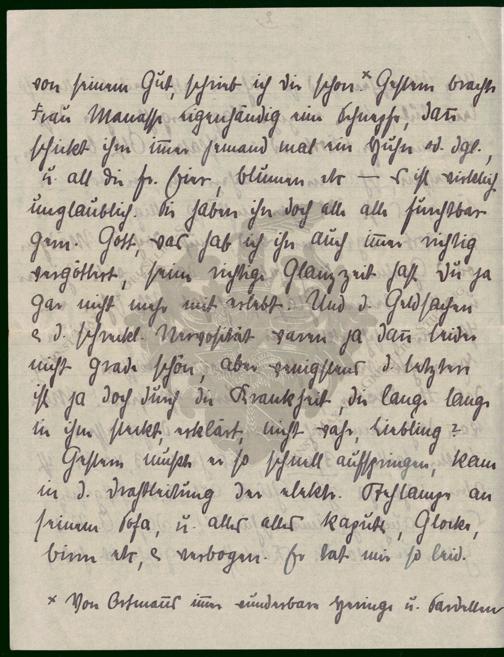 von seinem Gut, schrieb ich dir schon.× Gestern brachte
Frau Manasse eigenhändig eine Schnepfe, dann
schickt ihm immer jemand mal ein Huhn od. dgl.,
u. all die fr. Eier, Blumen etc — es ist wirklich
unglaublich. Sie haben ihn doch alle alle furchtbar
gern. Gott, was hab ich ihn auch immer richtig
vergöttert, seine richtige Glanzzeit hast Du ja
gar nicht mehr mit erlebt. Und d. Geldsachen
& d. schreckl. Nervosität waren ja dann leider
nicht grade schön, aber wenigstens d. letztere
ist ja doch durch die Krankheit, die lange lange
in ihm steckt, erklärt, nicht wahr, Liebling?
Gestern mußte er so schnell aufspringen, kam
in d. Drahtleitung der elektr. Stehlampe an
seinem Sofa, u. alles alles kaputt, Glocke,
Birne etc, & verbogen. Er tat mir so leid.
× Von Ortmanns immer wunderbare Heringe u. Sardellen